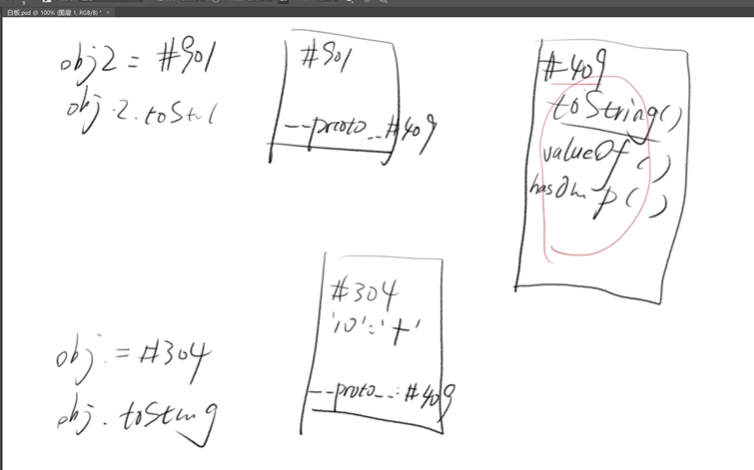 白板.psd @ 100% (图层 1, RGB/8) *
obj2 = #901
obj.2.toStri
#901
--proto--#409
#409
toString()
valueOf()
hasOwnp()
obj. = #304
obj.toString
#304
'10':'+'
--proto--:#409